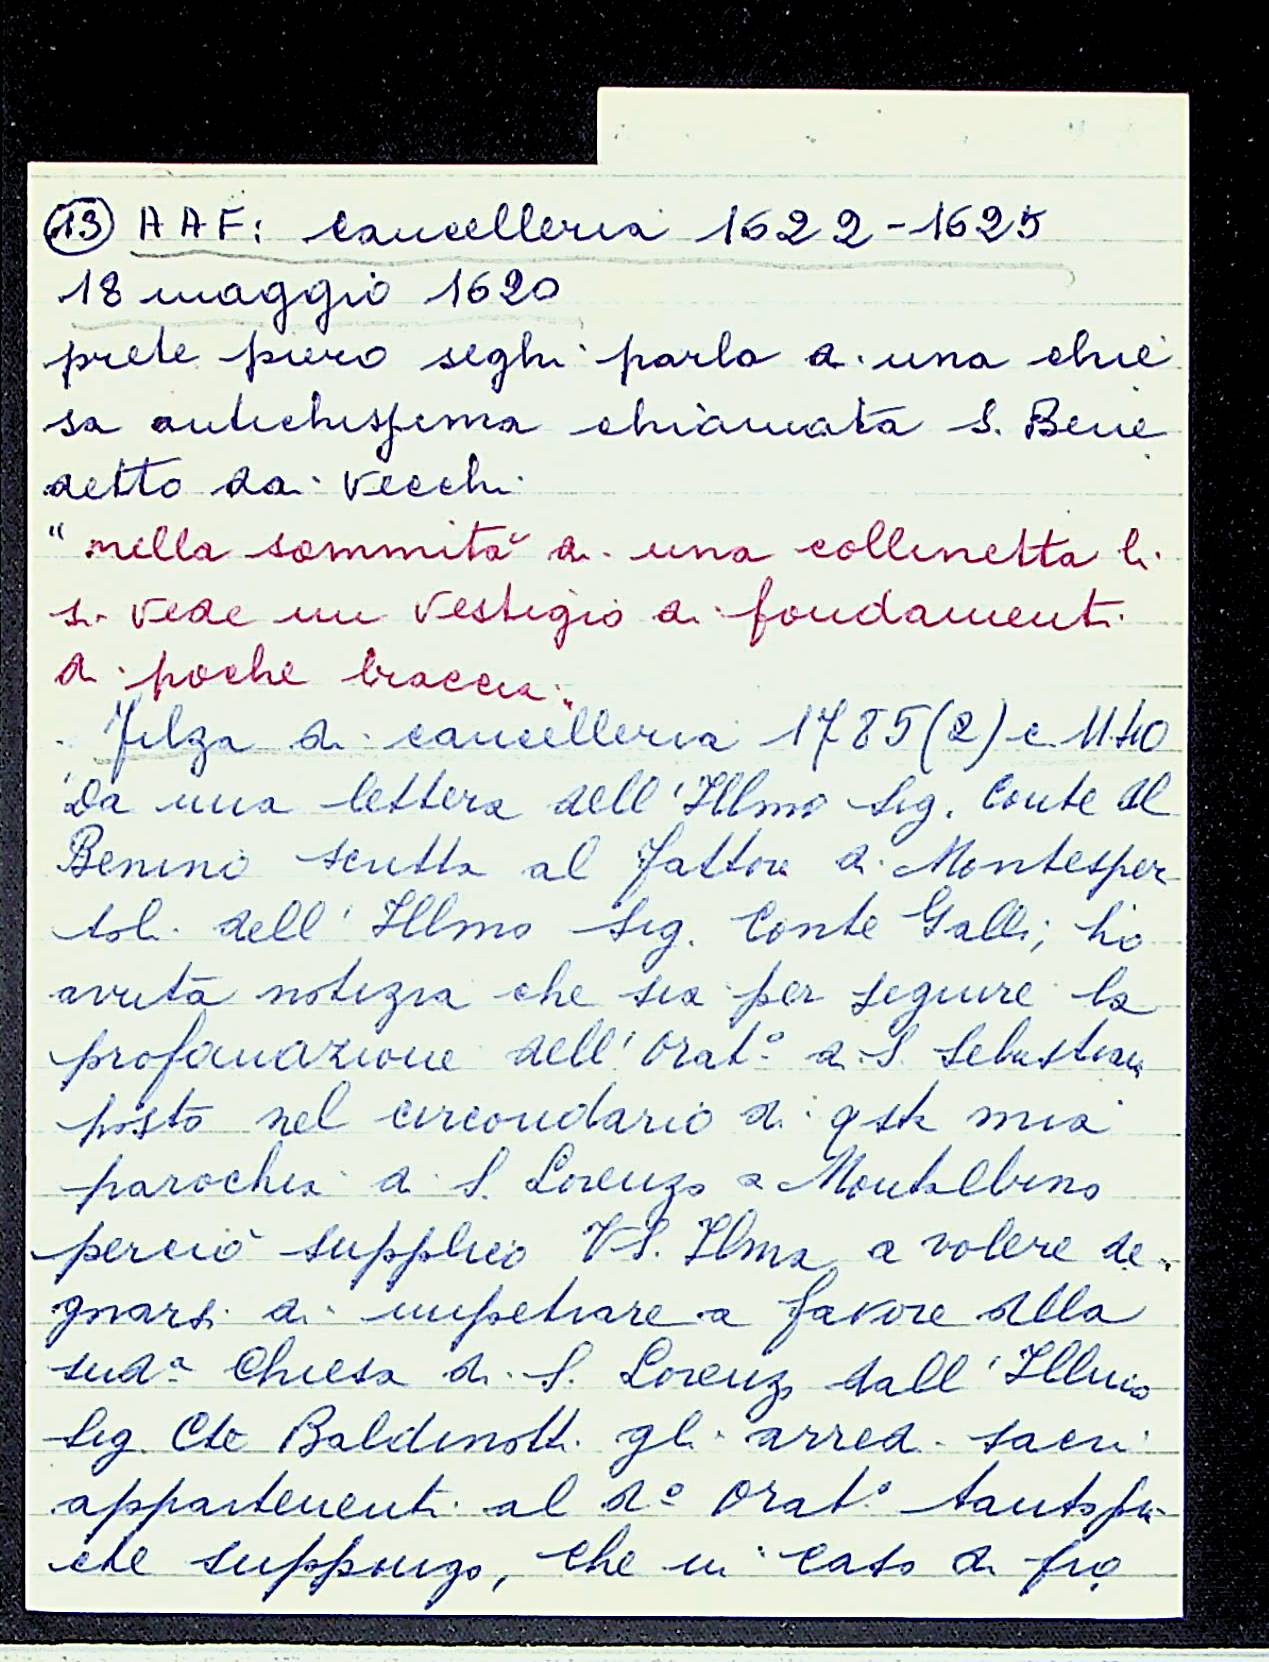 (13) AAF: Cancelleria 1622-1625
18 maggio 1620
prete piero seghi parla di una chie
sa antichissima chiamata S. Bene
detto dai Vecchi
"nella sommità di una collinetta li
si vede un vestigio di fondamenti
di poche braccia."
Filza di cancelleria 1785(2) c 1140
Da una lettera dell'Illmo Sig. Conte Del
Benino scritta al fattore di Montesper-
toli dell'Illmo Sig. Conte Galli; ho
avuta notizia che sia per seguire la
profanazione dell'Orat° di S. Sebastian
posto nel circondario di qsta mia
parochia di S. Lorenzo a Montalbino
perciò supplico VS. Ilma a volere de-
gnarsi di impetrare a favore della
sudª Chiesa di S. Lorenzo dall'Illmo
Sig. Cte Baldinotti gli arredi sacri
appartenenti al d° Orat° tantopiu-
che suppongo, che in caso di